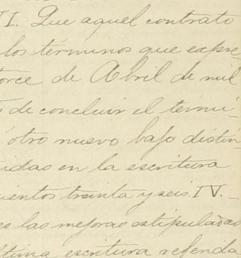 VI. Que aquel contrato
los términos que expre
orce de Abril de mil
s de concluir el térmi
otro nuevo bajo distin
uidas en la escritura
cientos treinta y seis IV.-
es las mejoras estipuladas
ltima escritura refenda